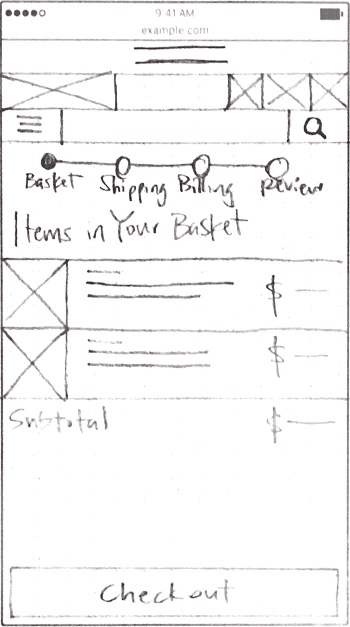 9:41 AM
example.com
Basket Shipping Billing Review
Items in Your Basket
$
$
Subtotal $
Checkout